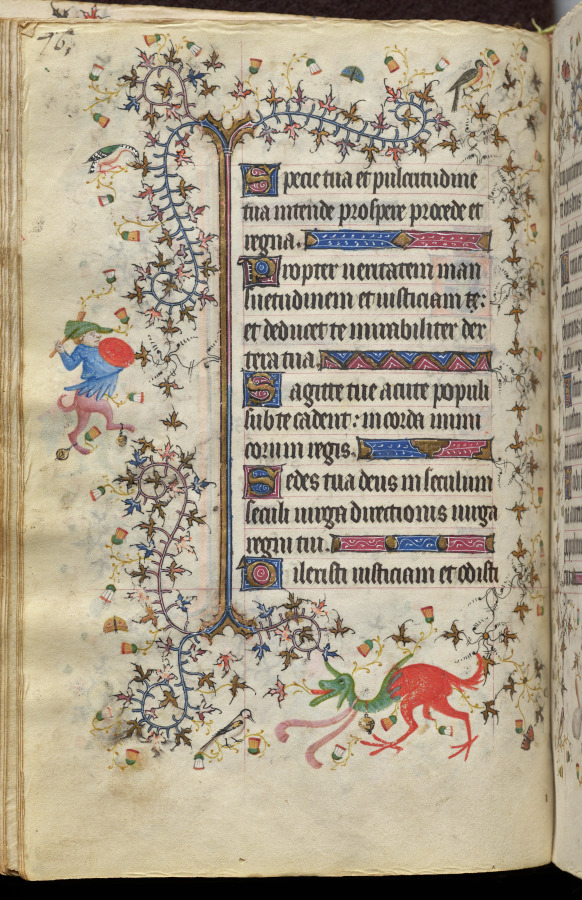 76
Specie tua et pulcritudine
tua intende prospere procede et
regna.
Propter ueritatem man
suetudinem et iusticiam &c:
et deducet te mirabiliter dex
tera tua.
Sagitte tue acute populi
sub te cadent: in corda inimi
corum regis.
Sedes tua deus in seculum
seculi uirga directionis uirga
regni tui.
Dilexisti iusticiam et odisti